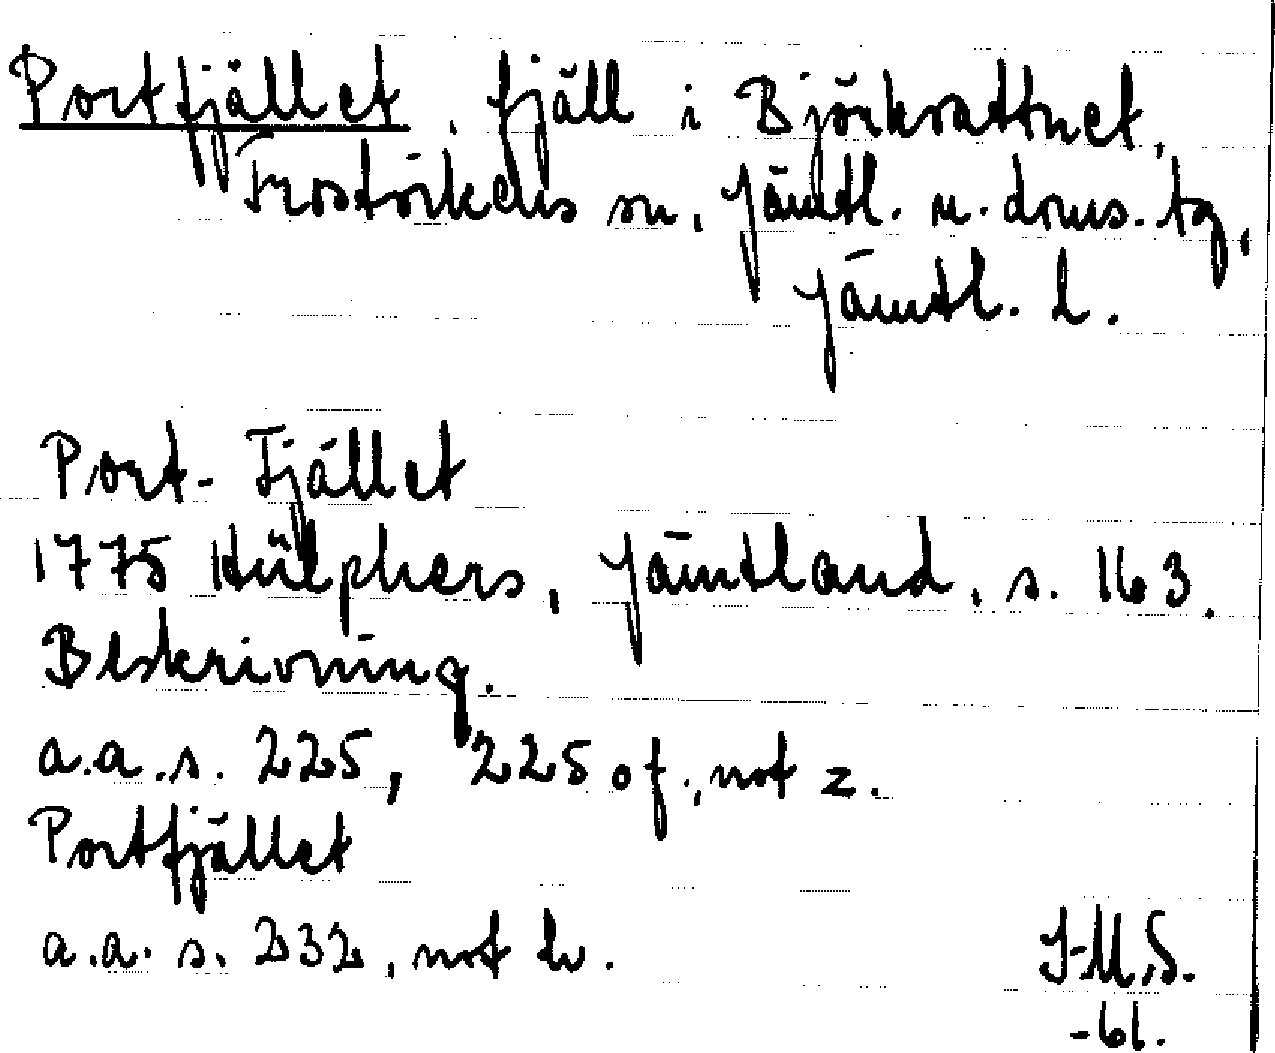 Portfjället, fjäll i Björkvattnet,
Frostvikens sn, Jämtl. n. doms. tg,
Jämtl. l.
Port-Fjället
1775 Hülphers, Jämtland, s. 163.
Beskrivning.
a.a.s. 225, 225 of., not z.
Portfjället
a.a. s. 232, not
J-M.S.
-61.